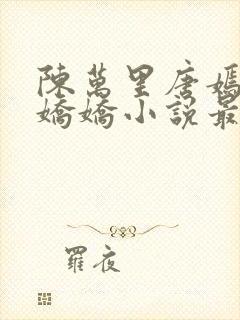 陳萬里唐嫣
嬌嬌小說最
羅夜